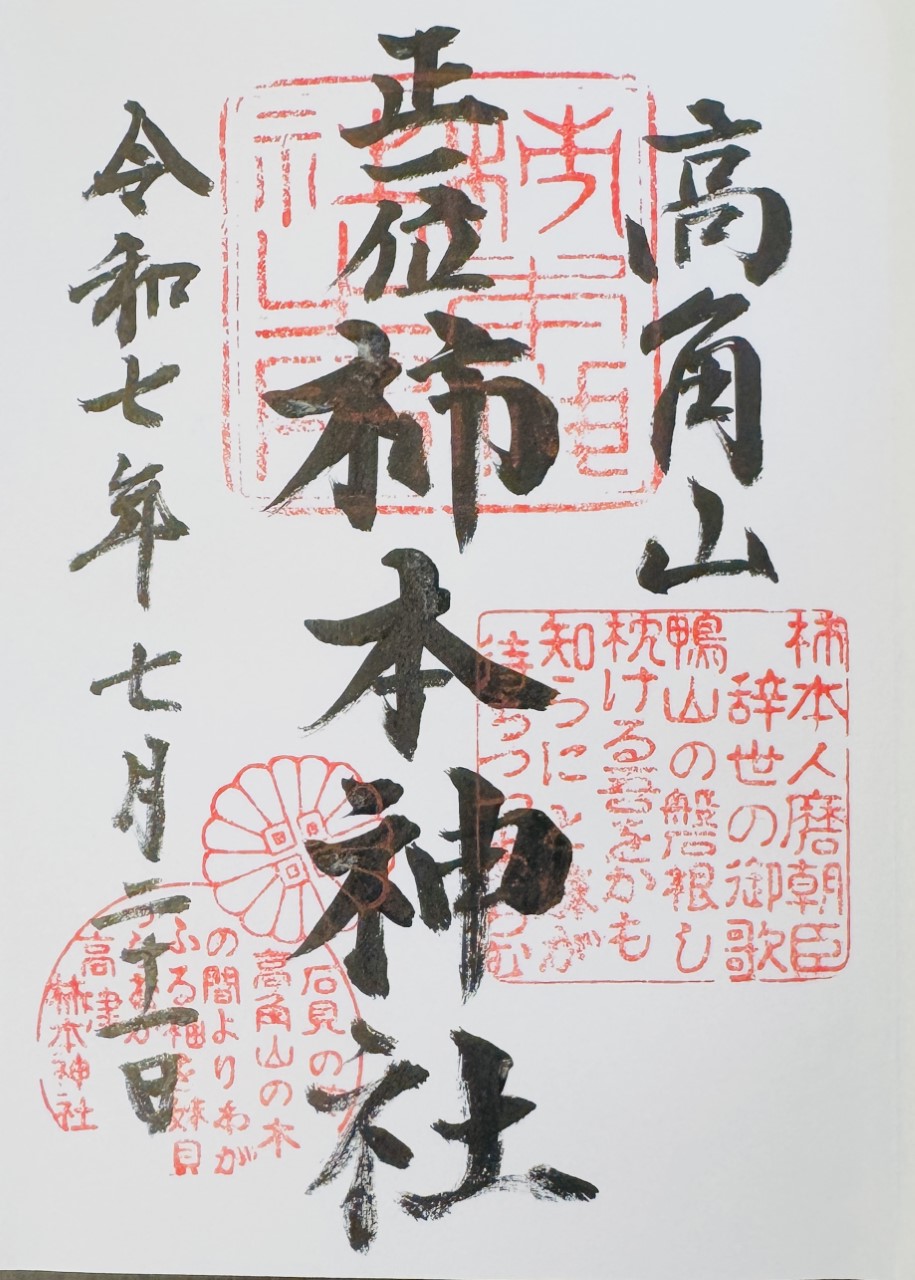 高角山
正一位柿本神社
令和七年七月二十一日
柿本人麿朝臣
辞世の御歌
鴨山の磐根し
枕ける吾をかも
知らにと妹が
待ちつつあるらむ
石見の
高角山の木
の間よりわが
ふる袖を妹見
高津
柿本神社